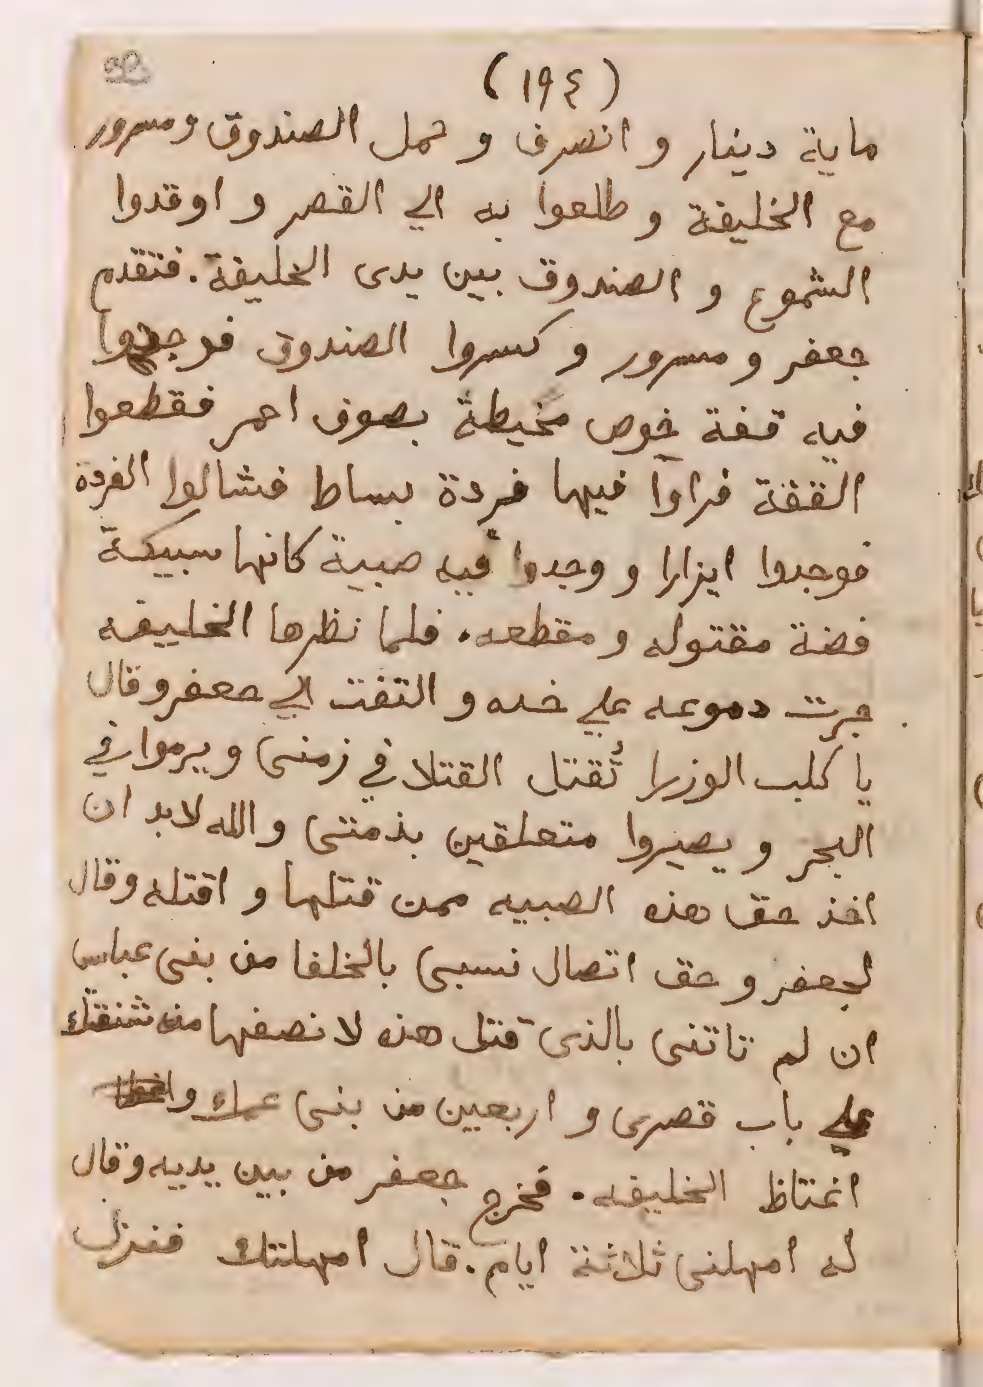 (١٩٤)
ماية دينار و انصرف و حمل الصندوق ومسرور
مع الخليفة و طلعوا به الي القصر و اوقدوا
الشموع و الصندوق بين يدى الخليفة. فتقدم
جعفر و مسرور و كسروا الصندوق فوجدوا
فيه قفة خوص مخيطة بصوف احمر فقطعوا
القفة فراوا فيها فردة بساط فشالوا الفردة
فوجدوا ايزارا و وجدوا فيه صبية كانها سبيكة
فضة مقتوله و مقطعه. فلما نظرها الخليفه
جرت دموعه علي خده و التفت الي جعفر وقال
يا كلب الوزرا تُقتل القتلا في زمنى ويرموا في
البحر و يصيروا متعلقين بذمتى والله لابد ان
اخذ حق هذه الصبيه ممن قتلها و اقتله وقال
لجعفر و حق اتصال نسبى بالخلفا من بنى عباس
ان لم تاتنى بالذى قتل هذه لانصفها منه شنقتك
علي باب قصرى و اربعين من بنى عمك و
اغتاظ الخليفه. فخرج جعفر من بين يديه وقال
له امهلنى ثلاثة ايام. قال امهلتك فنزل